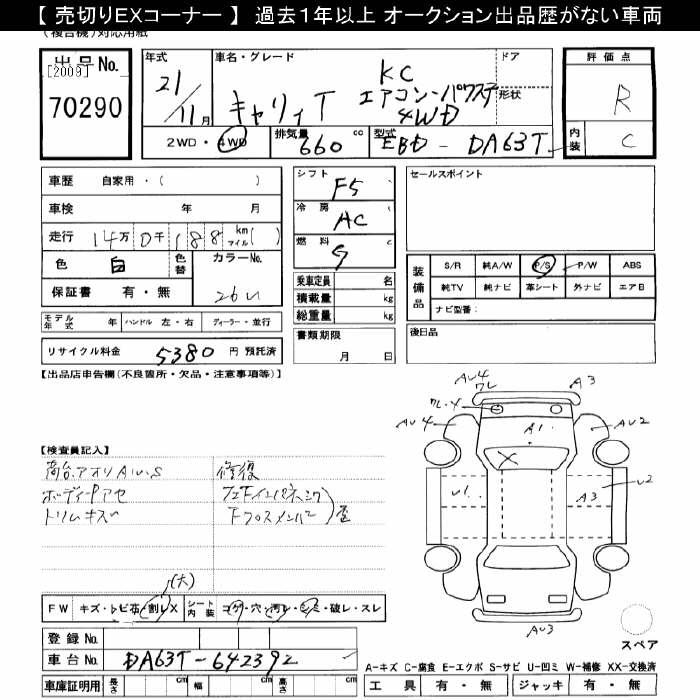 【 売切りEXコーナー 】 過去1年以上 オークション出品歴がない車両
(複合機)対応用紙
出品No.
[2009]
70290
年式
21/11月
車名・グレード
キャリィT
KC
エアコン・パワステ
4WD
ドア
形状
評価点
R
内装
C
2WD・4WD
排気量
660
cc
型式
EBD-DA63T
車歴 自家用・( )
車検 年 月
走行 14万 0千 188 km マイル( )
色 白 色替 カラーNo.
26U
保証書 有・無
モデル年式 年 ハンドル 左・右 ディーラー・並行
リサイクル料金 5380 円 預託済
シフト
F5
冷房
AC
燃料
G
c
乗車定員 名
積載量 kg
総重量 kg
書類期限
月 日
セールスポイント
装備品
S/R 純A/W P/S P/W ABS
純TV 純ナビ 革シート 外ナビ エアB
ナビ型番:
後日品
【出品店申告欄(不良箇所・欠品・注意事項等)】
【検査員記入】
荷台.アオリAU.S
ボディーPアセ
トリムキズ
修復
Fクロスメンバー
歪
AU4
ワレ
A3
ワレ・4
AU4
A1.
AU2
U1.
A3
U2
AU3
(大)
FW キズ・トビ石・割レX シート内装 コゲ・穴・汚レ・シミ・破レ・スレ
登録No.
車台No. DA63T-642392
車庫証明用 長さ cm 幅 cm 高さ cm
スペア
A-キズ C-腐食 E-エクボ S-サビ U-凹ミ W-補修 XX-交換済
工具 有・無 ジャッキ 有・無